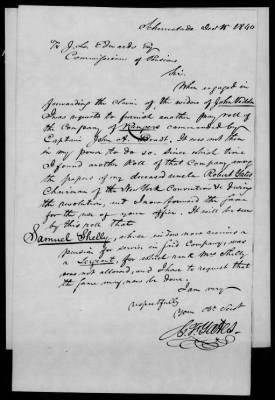 Schenectada Dec 18 1840
To J. L. Edwards Esq
Commissioner of Pensions
Sir,
When engaged in
forwarding the claim of the widow of John
I was requested to furnish another pay roll of
the Company of Rangers commanded by
Captain John A. Bradt, It was not then
in my power to do so. Since which time
I found another Roll of that Company among
the papers of my deceased uncle Robert Yates
Chairman of the New York Convention & during
the revolution, and I now forward the same
for the use of your office. It will be seen
by this roll that
Samuel Shelly, whose widow now receives a
pension for service in said Company, was
a Sergeant, for which rank Mr Shelly
was not allowed, and I have to request that
the same may now be done.
I am very
respectfully
Your Ob. Servt
Yates